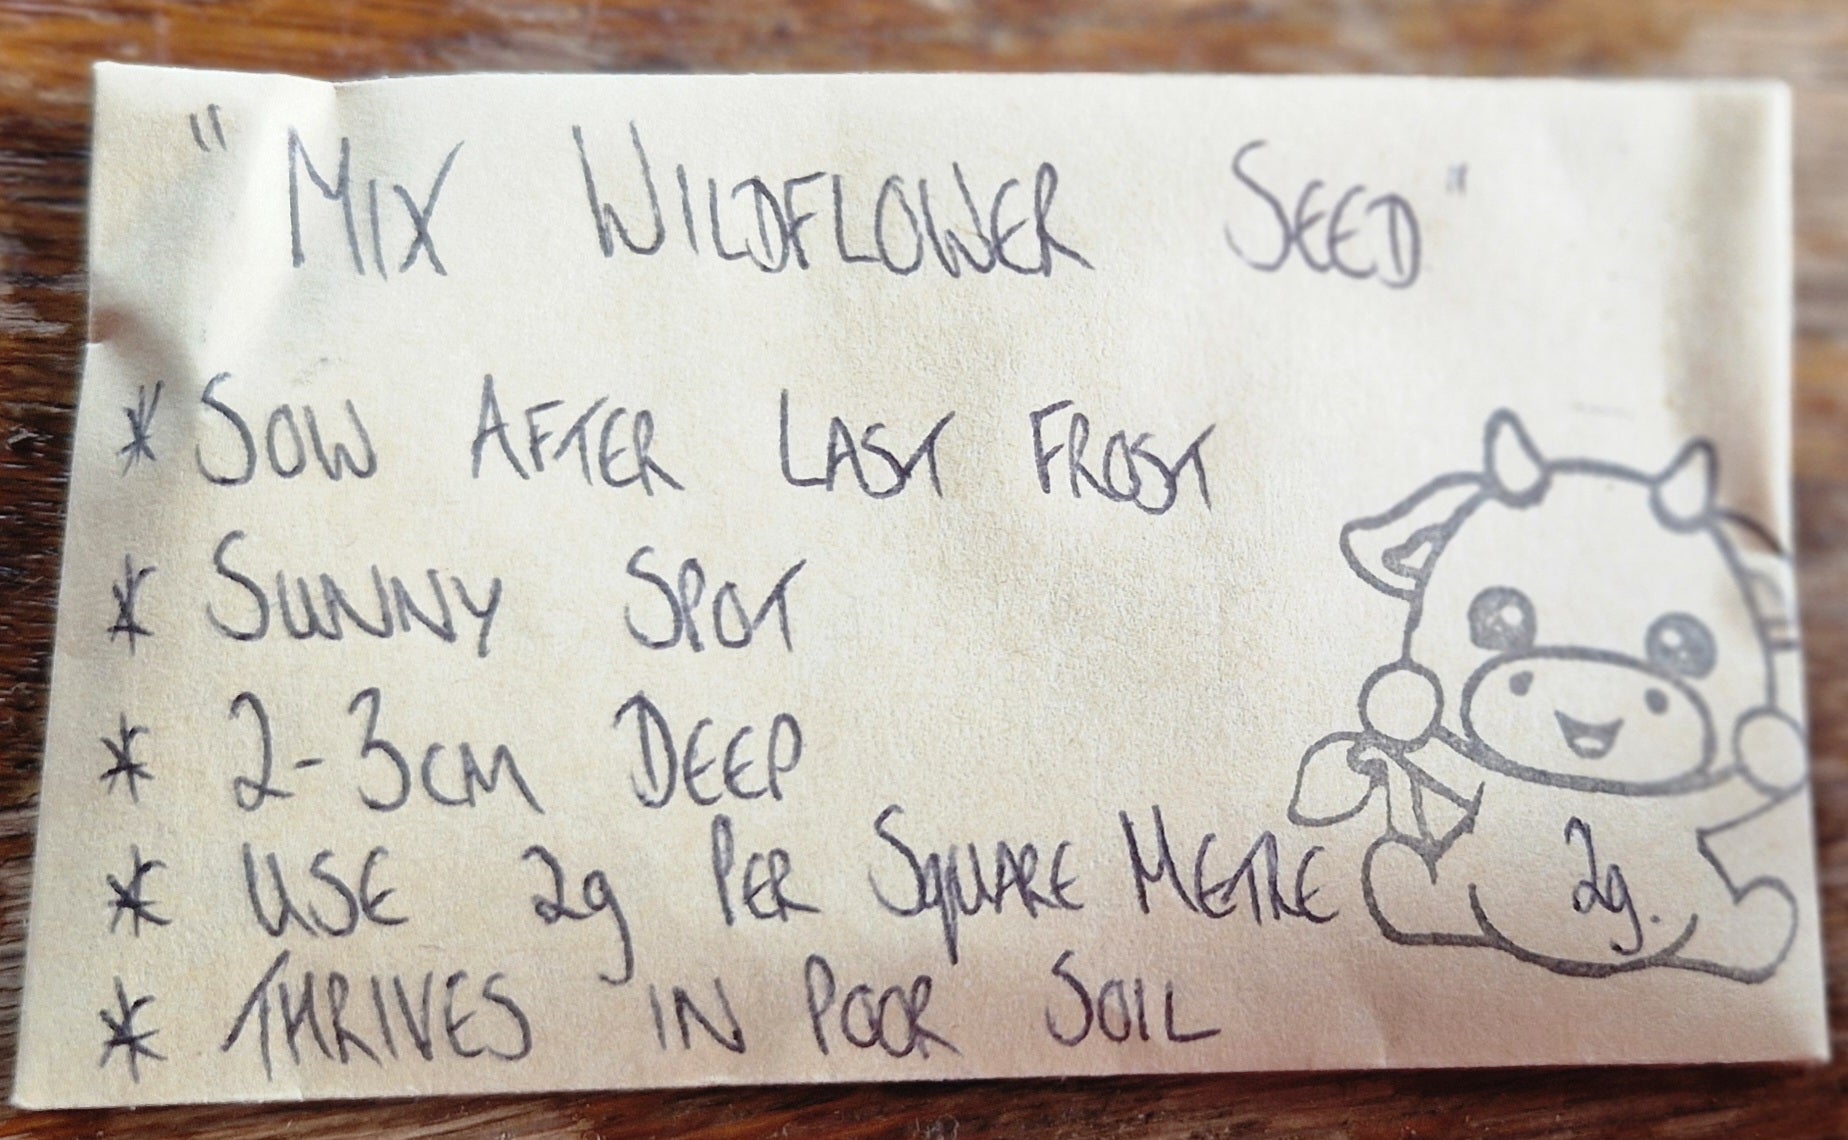 "MIX WILDFLOWER SEED"
* SOW AFTER LAST FROST
* SUNNY SPOT
* 2-3CM DEEP
* USE 2g PER SQUARE METRE
2g.
* THRIVES IN POOR SOIL